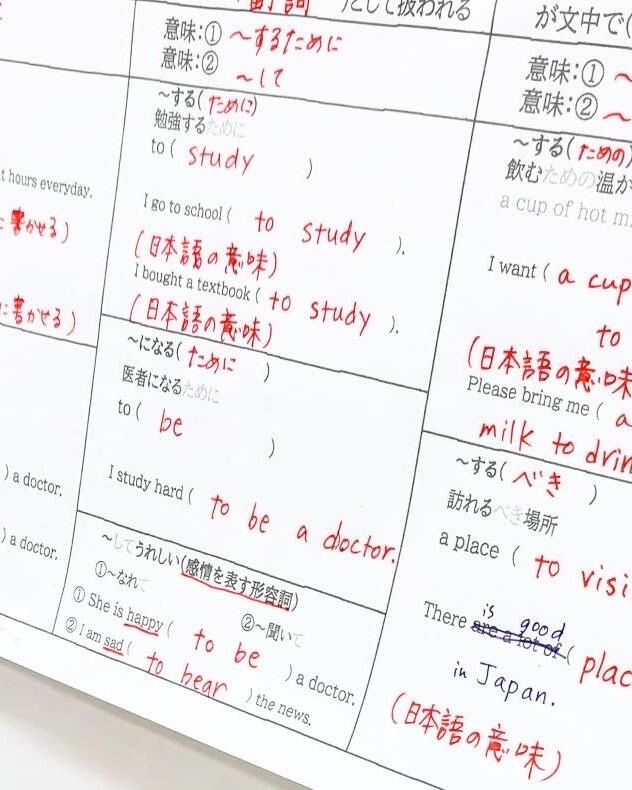 副詞 )として扱われる
意味:① ～するために
意味:② ～して
～する(ために)
勉強するために
to ( study )
I go to school ( to study ).
(日本語の意味)
I bought a textbook ( to study ).
(日本語の意味)
～になる(ために )
医者になるために
to ( be )
I study hard ( to be a doctor.
～してうれしい(感情を表す形容詞)
①～なれて ②～聞いて
① She is happy ( to be ) a doctor.
② I am sad ( to hear ) the news.
t hours everyday.
書かせる)
に書かせる)
) a doctor.
) a doctor.
が文中で(
意味:① ～
意味:② ～
～する(ための)
飲むための温か
a cup of hot mi
I want ( a cup
to
(日本語の意味
Please bring me ( a
milk to drin
～する(べき )
訪れるべき場所
a place ( to visi
There is good are a lot of ( plac
in Japan.
(日本語の意味)